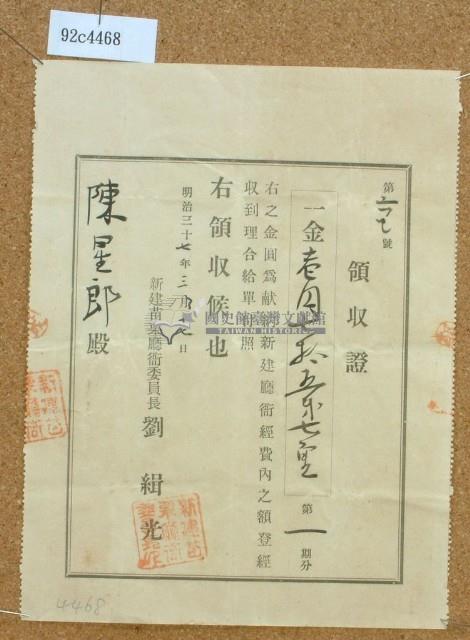 92c4468
領收證
第 號
一金壱円七拾五錢七厘 第一期分
右之金圓爲献納新建廳衙經費內之額登經
收到理合給單執照
右領收候也
明治三十七年三月 日
新建苗栗廳衙委員長 劉緝光
陳星郎殿
國史館臺灣文獻館
TAIWAN HISTORICA
4468